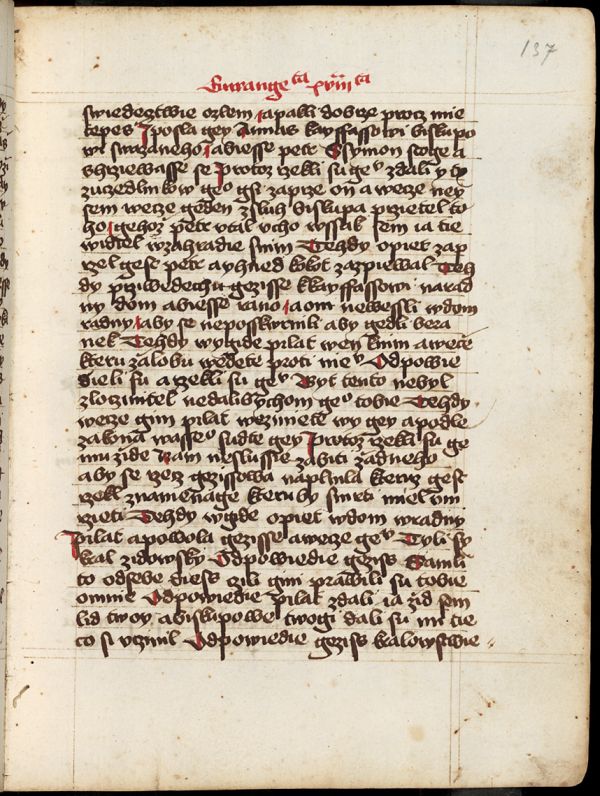 137
Ewange ta xviii ta
swiedecztwie ozlem apakli dobrze procz mie
tepes Iposla gey Annas kayffassowi biskupo
wi swazaneho abiesse petr Ssymon stoge a
shrziewasse se Protoz rzekli su geu zdali y ty
zuczedlnikow geo gsi zaprze on a wecze ney
sem wecze geden zsluh biskupa przietel to
ho gehoz petr utal ucho wssak sem ia tie
widiel wzahradie snim Tehdy opiet zap
rzel gest petr a yhned kokot zazpiewal Teh
dy przywedechu gezisse kkayffassowi narad
ny dom abiesse rano a oni newessli wdom
radny aby se neposskwrnili aby gedli bera
nek Tehdy wygide pilat wen knim a wece
kteru zalobu wedete proti nieu Odpowie
dieli su a rzekli su geu Byt tento nebyl
zloczinczel nedalibychom geo tobie Tehdy
wecze gim pilat wezmiete wy gey apodle
zakona wasseo sudte gey Protoz rzekli su ge
mu zide Nam neslussie zabiti zadneho
aby se rzecz gezissowa naplnila kteruz gest
rzekl znamenage kteru by smrti miel um
rzieti Tehdy wgide opiet wdom wradny
Pilat apowola gezisse awecze geu Tyli sy
kral zidowsky Odpowiedie geziss Samli
to odsebe dies czili gini prawili su tobie
omnie Odpowiedie pilat zdali ia zid sem
lid twoy abiskupowe twogi dali su mi tie
co si uczinil Odpowiedie geziss kralowstwie